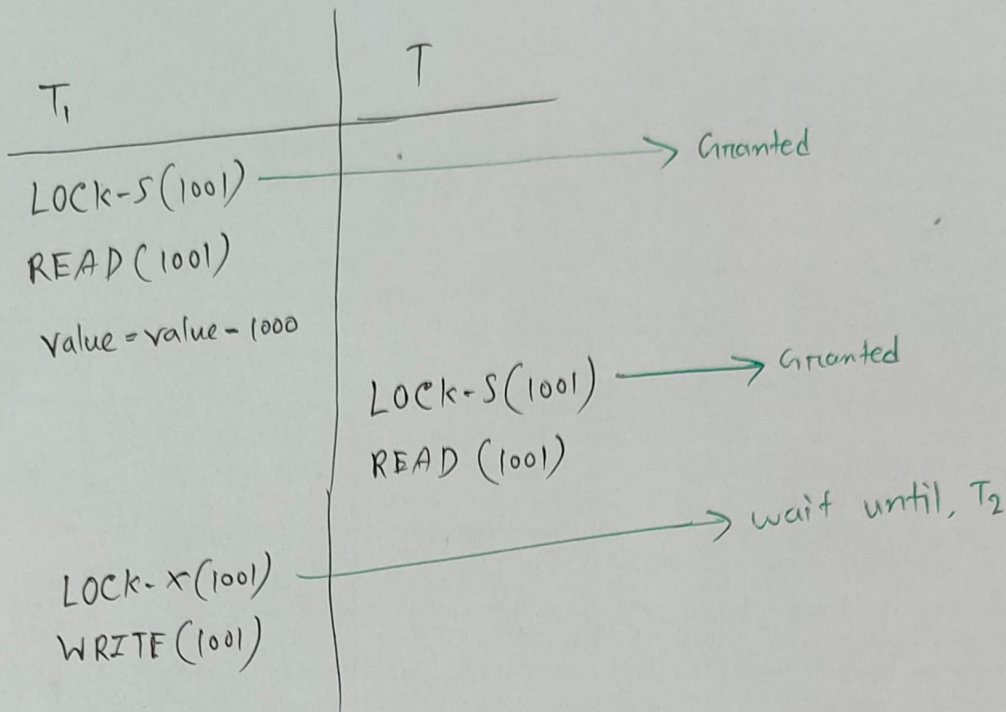 T₁
T
LOCK-S(1001)
Granted
READ(1001)
value = value - 1000
LOCK-S(1001)
Granted
READ (1001)
LOCK-X(1001)
wait until, T₂
WRITE(1001)